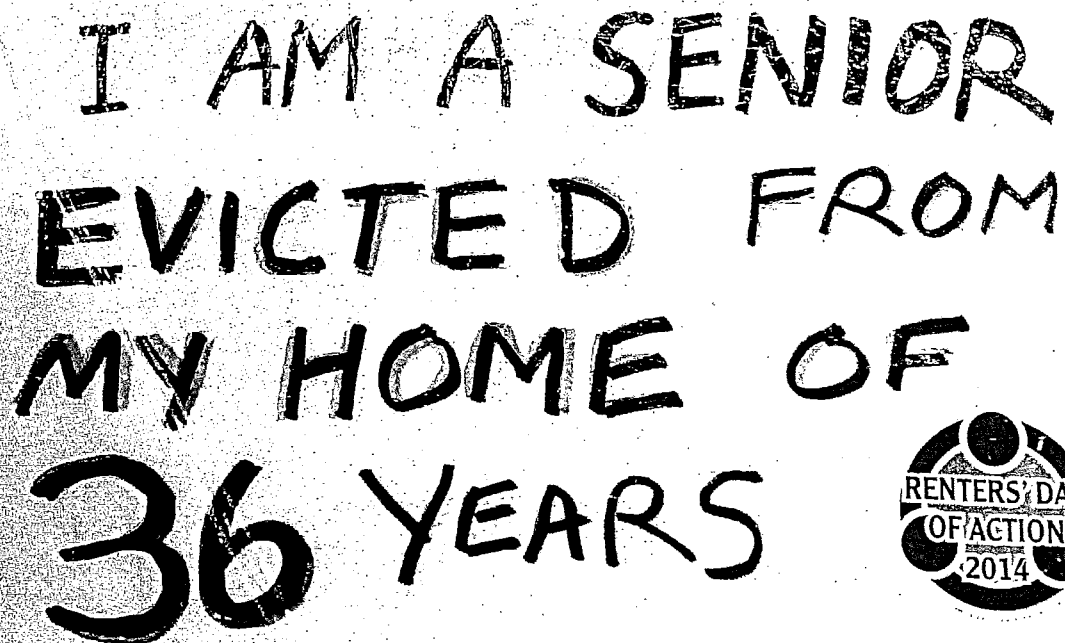 I AM A SENIOR
EVICTED FROM
MY HOME OF
36 YEARS
RENTERS' DA
OF ACTION
2014